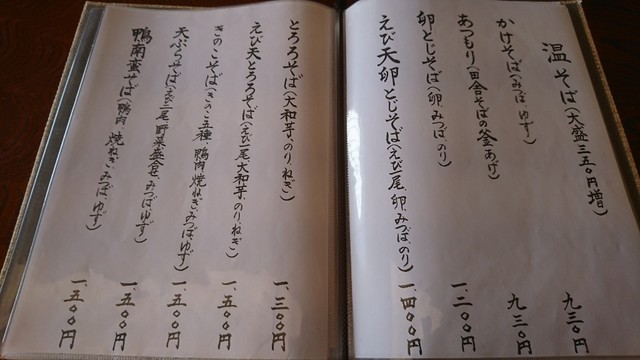 温そば(大盛三五〇円増)
かけそば(みつば、ゆず) 九三〇円
あつもり(田舎そばの釜あげ) 九三〇円
卵とじそば(卵、みつば、のり) 一、二〇〇円
えび天卵とじそば(えび一尾、卵、みつば、のり) 一、四〇〇円
とろろそば(大和芋、のり、ねぎ) 一、三〇〇円
えび天とろろそば(えび一尾、大和芋、のり、ねぎ) 一、五〇〇円
きのこそば(きのこ五種、鴨肉、焼ねぎ、みつば、ゆず) 一、五〇〇円
天ぷらそば(えび二尾、野菜盛合せ、みつば、ゆず) 一、五〇〇円
鴨南蛮そば(鴨肉、焼ねぎ、みつば、ゆず) 一、五〇〇円